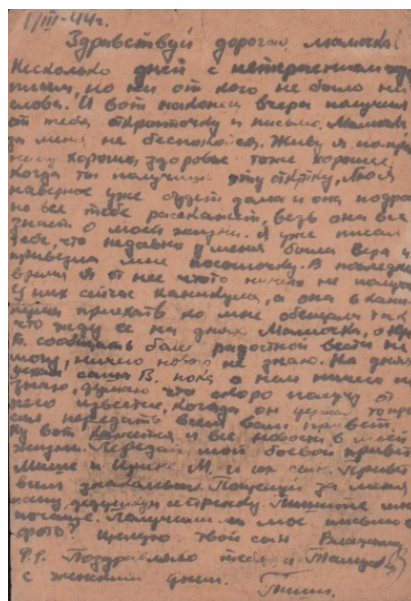 1/III-44г.
Здравствуй дорогая мамочка!
Несколько дней с нетерпением жду
писем, но ни от кого не было ни
слова. И вот наконец вчера получил
от тебя открыточку и письмо. Мамочка
за меня не беспокойся. Живу я по-преж
нему хорошо, здоровье тоже хорошее.
Когда ты получишь эту открытку, Люся
наверное уже будет дома и она подроб
но все тебе расскажет, ведь она все
знает о моей жизни. Я уже писал
тебе, что недавно у меня была Вера и
привезла мне посылочку. В последнее
время я от нее что-то ничего не получ
У них сейчас каникулы, а она в кани
кулы приехать ко мне обещала так
что жду ее на днях. Мамочка, о Юре
сообщить вам радостной вести не
могу, ничего нового не знаю. На днях
уехал Саша В. пока о нем ничего не
знаю, думаю что скоро получу от
него известие, когда он уезжал то про
сил передать всем вам привет.
Ну вот кажется и все новости в моей
жизни. Передай мой боевой привет
Мише и М. и их сын. Привет
всем знакомым. Поцелуй за меня
дедушку и Пишите мне
почаще. Получили ли мое письмо и
фото? Целую твой сын
P.S. Поздравляю тебя и
с женским днем.